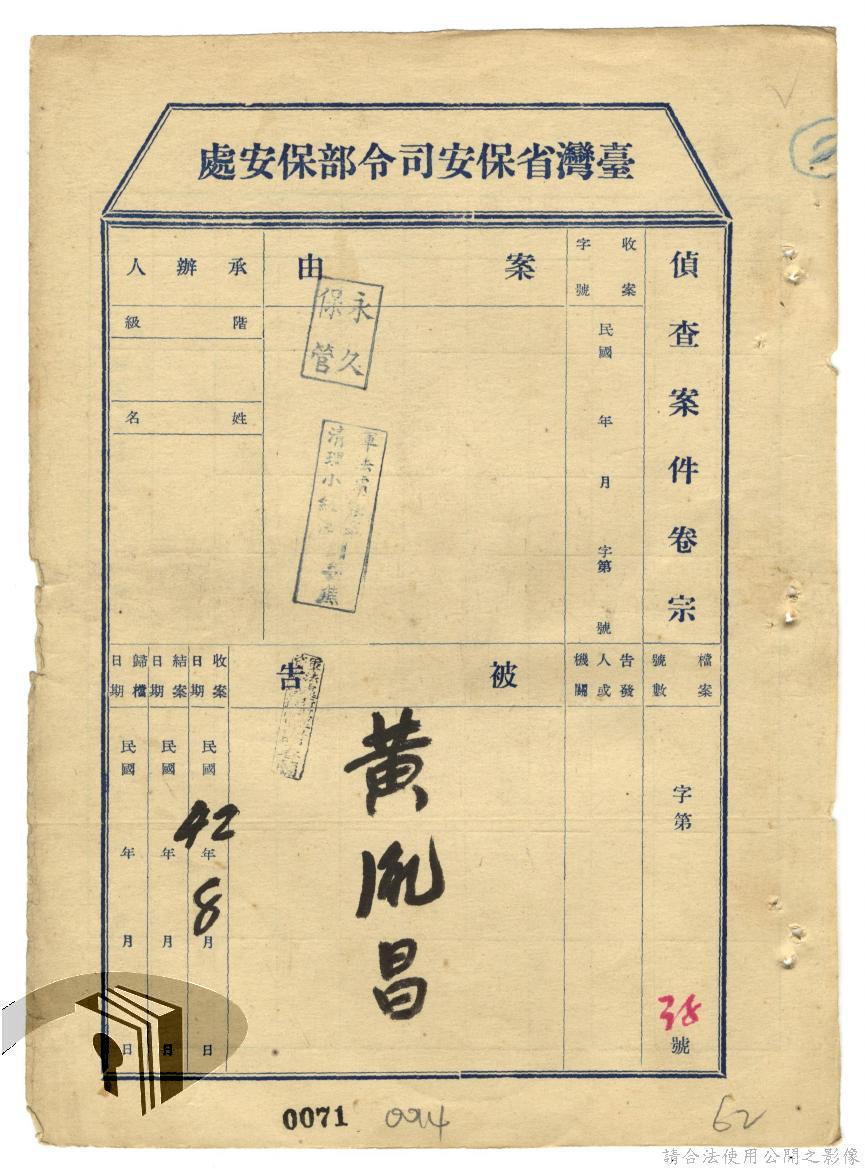 臺灣省保安司令部保安處
偵查案件卷宗
收案
字號
民國 年 月 字第 號
案由
永久
保管
清理小組
承辦人
階級
姓名
檔案
號數
字第 38 號
告發
人或
機關
被告
黃胤昌
收案
日期
民國 42 年 8 月 日
結案
日期
民國 年 月 日
歸檔
日期
民國 年 月 日
0071 094
62
請合法使用公開之影像